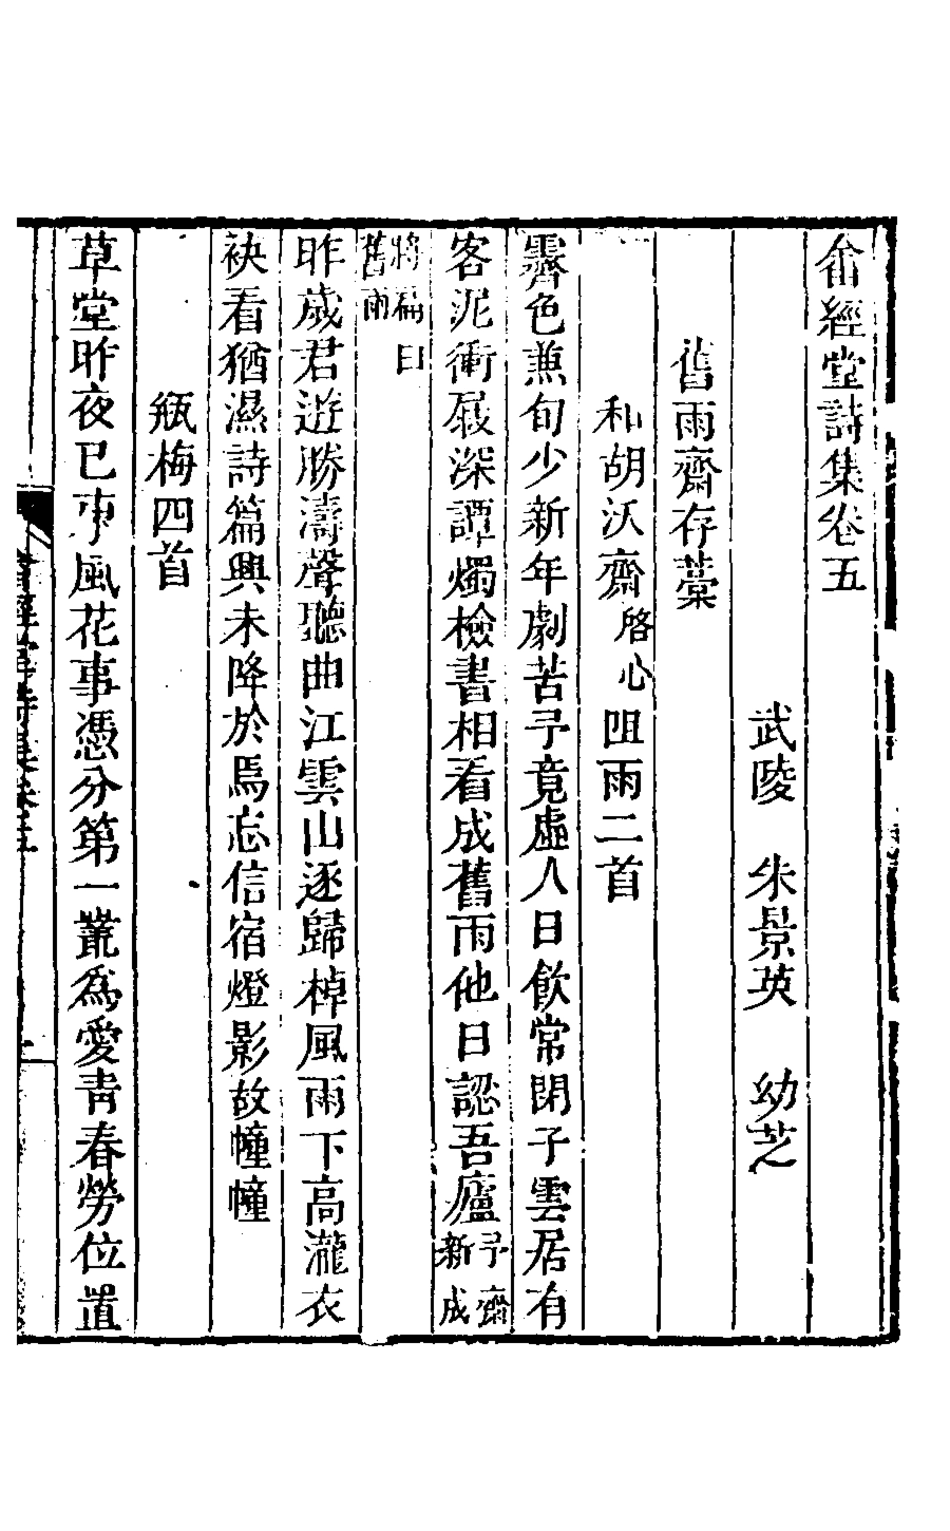 畬經堂詩集卷五
武陵　朱景英　幼芝
舊雨齋存藁
和胡沃齋啓心咀雨二首
霽色兼旬少新年劇苦予竟虛人日飲常閉子雲居有
客泥衝屐深譚燭檢書相看成舊雨他日認吾廬予齋新成
將扁曰舊雨
昨歲君遊勝濤聲聽曲江雲山逐歸棹風雨下高瀧衣
袂看猶濕詩篇興未降於焉忘信宿燈影故幢幢
瓶梅四首
草堂昨夜已東風花事憑分第一叢為愛青春勞位置
畬經堂詩集卷五